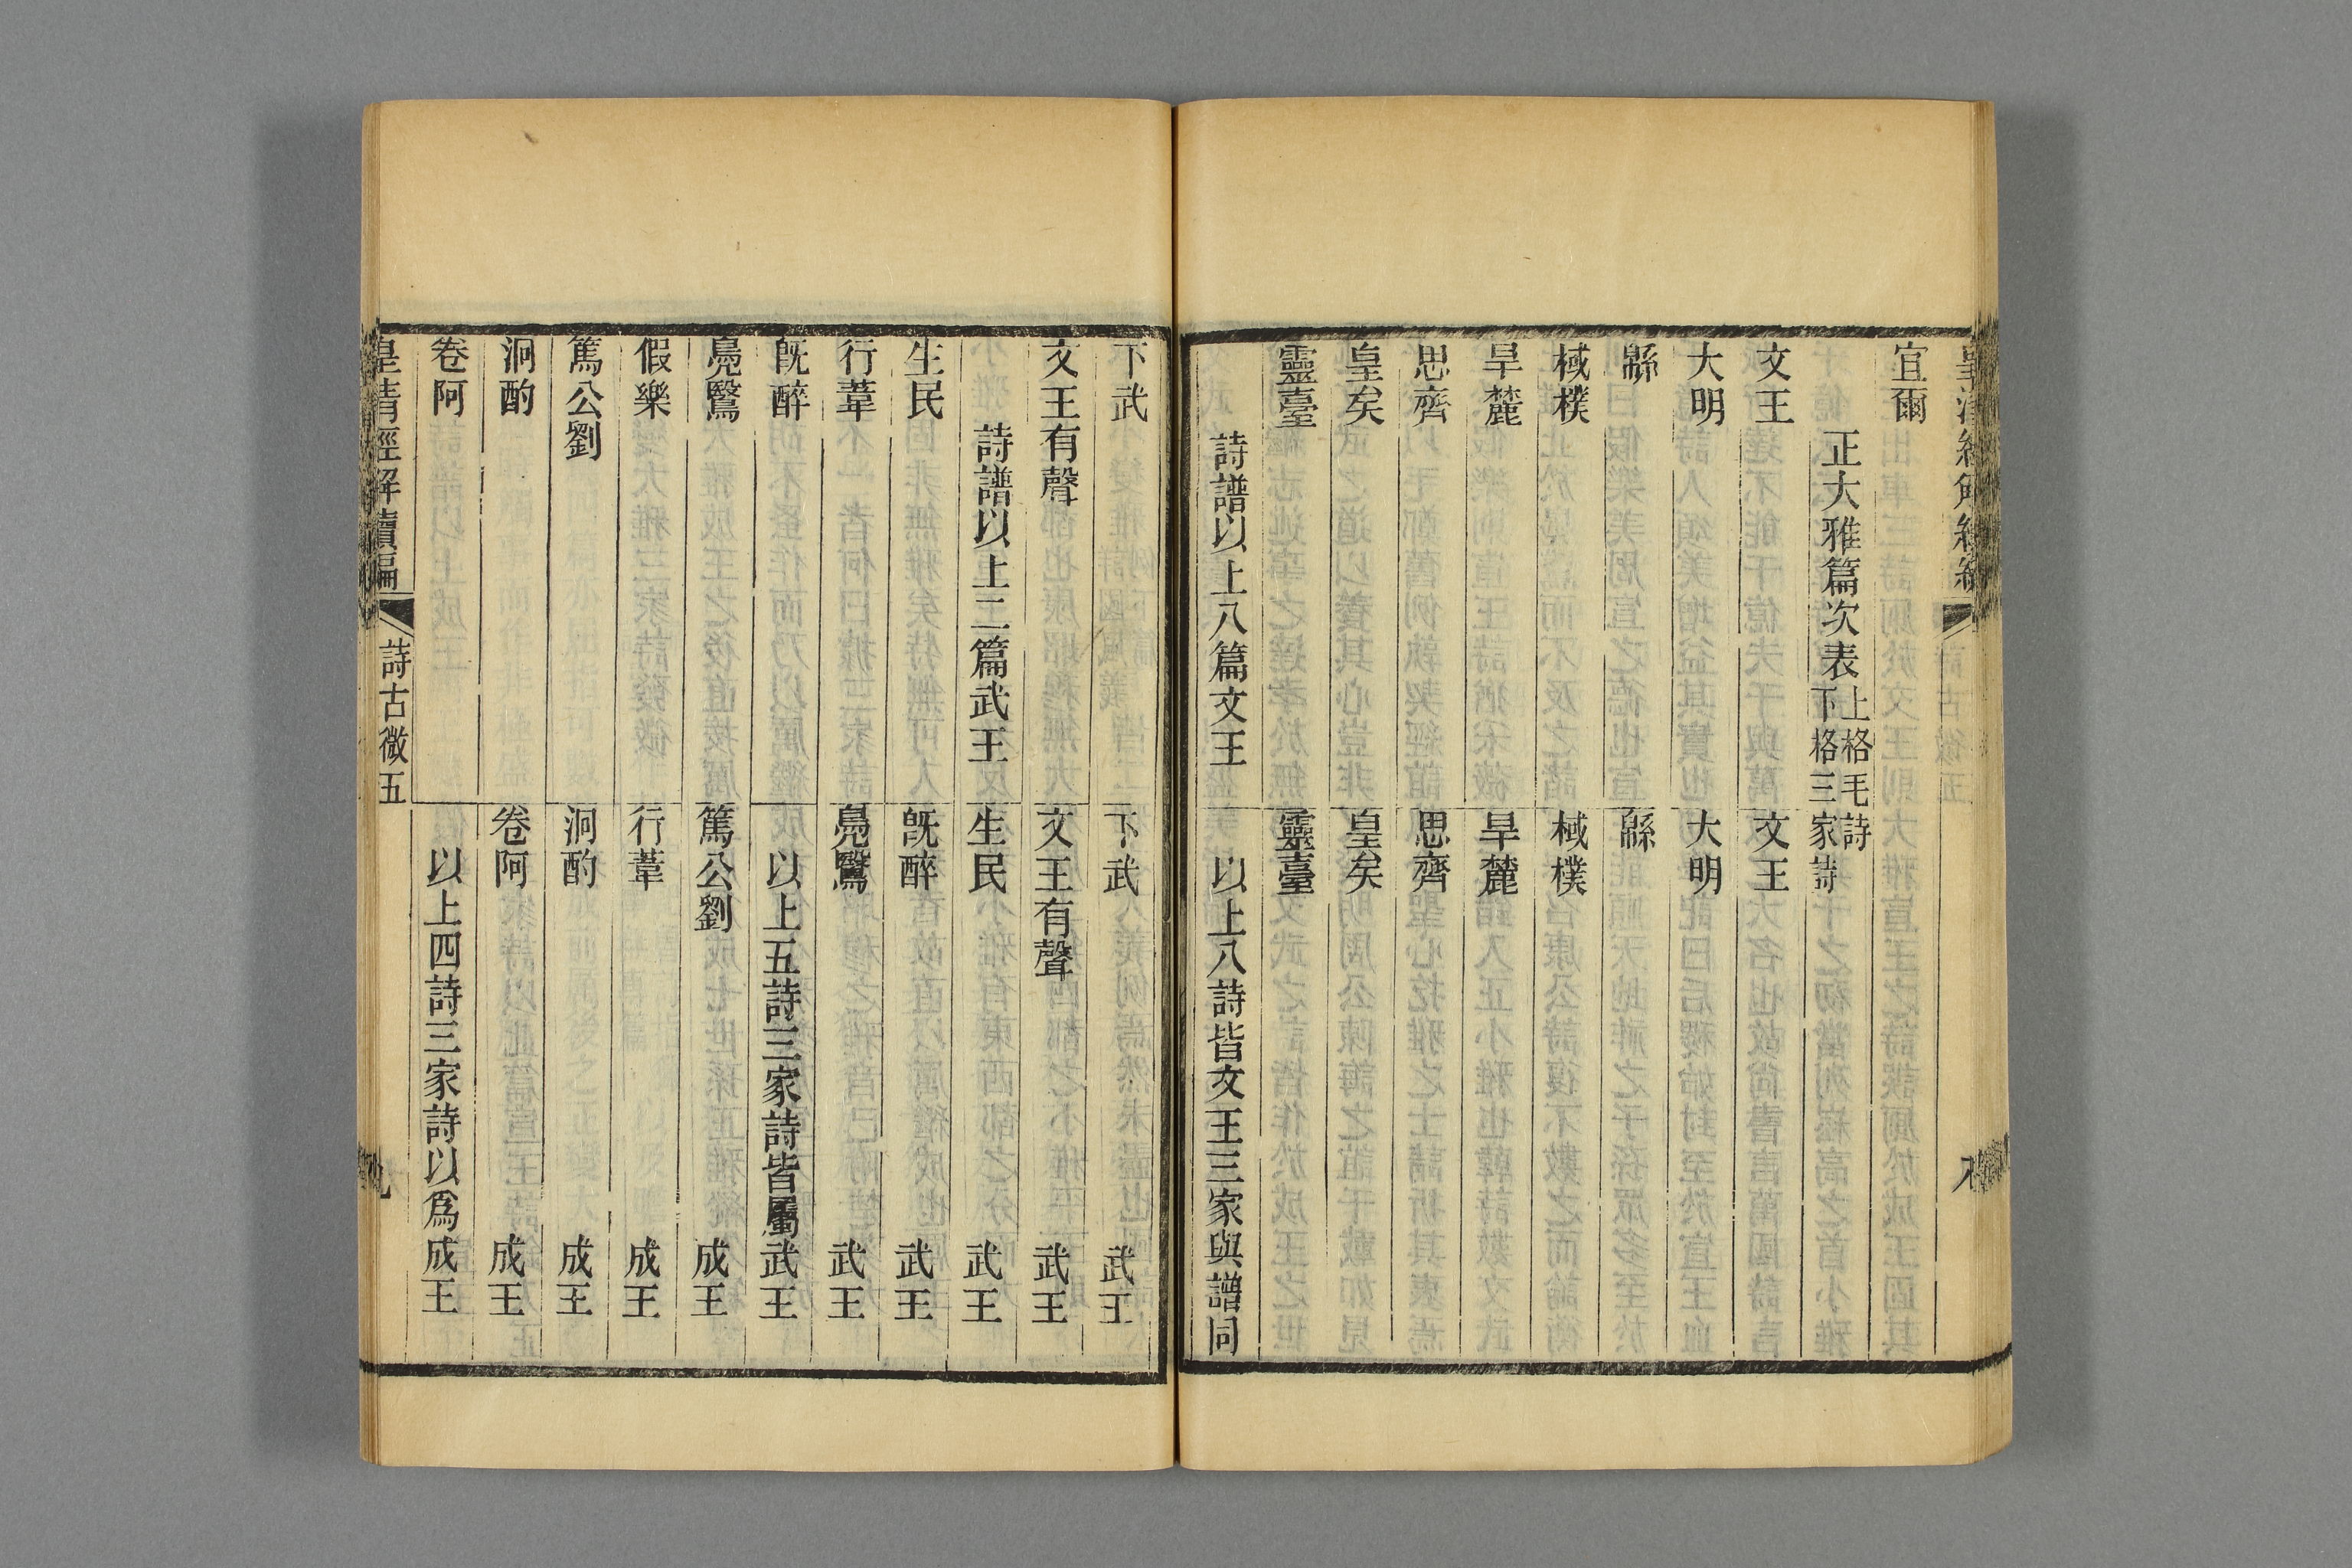 宜爾
正大雅篇次表 上格毛詩 下格三家詩
文王 文王
大明 大明
緜 緜
棫樸 棫樸
旱麓 旱麓
思齊 思齊
皇矣 皇矣
靈臺 靈臺
詩譜以上八篇文王 以上八詩皆文王三家與譜同
下武 下武 武王
文王有聲 文王有聲 武王
詩譜以上二篇武王 生民 武王
生民 旣醉 武王
行葦 鳧鷖 武王
旣醉 以上五詩三家詩皆屬武王
鳧鷖 篤公劉 成王
假樂 行葦 成王
篤公劉 泂酌 成王
泂酌 卷阿 成王
卷阿 以上四詩三家詩以爲成王
皇清經解續編 詩古微五